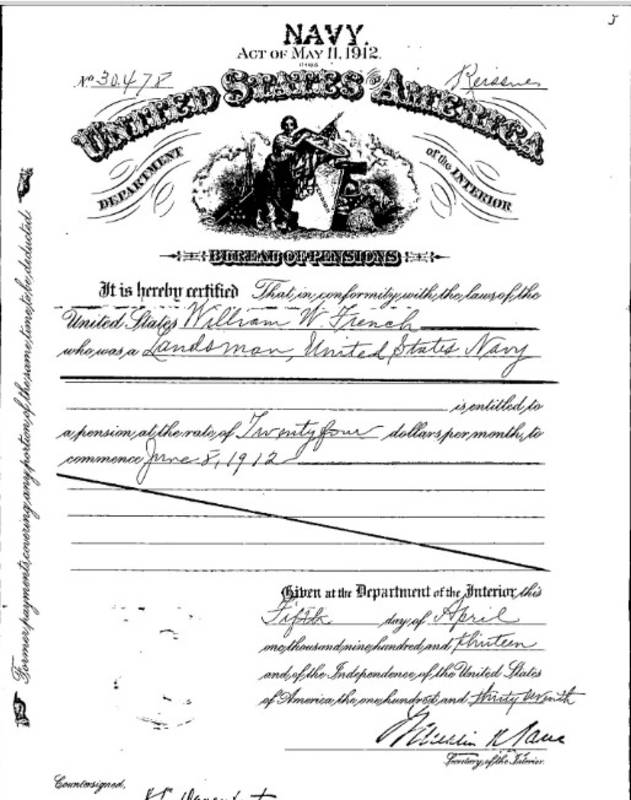 NAVY.
ACT OF MAY 11, 1912.
No 30.478 Reissue
UNITED STATES OF AMERICA
DEPARTMENT of the INTERIOR
BUREAU OF PENSIONS
It is hereby certified That in conformity with the laws of the
United States William W. French
who was a Landsman, United States Navy
is entitled to
a pension at the rate of Twenty four dollars per month, to
commence June 8, 1912
Given at the Department of the Interior this
Fifth day of April
one thousand nine hundred and thirteen
and of the Independence of the United States
of America the one hundred and thirty seventh
Franklin K Lane
Secretary of the Interior.
Countersigned,
Former payments covering any portion of the same time to be deducted.